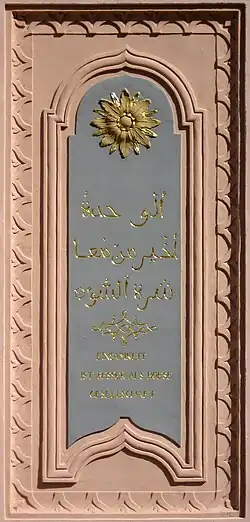 ألو حدة
أخير من معا
شرة ألسوء
EINSAMKEIT
IST BESSER ALS BOESE
GESELLSCHAFT